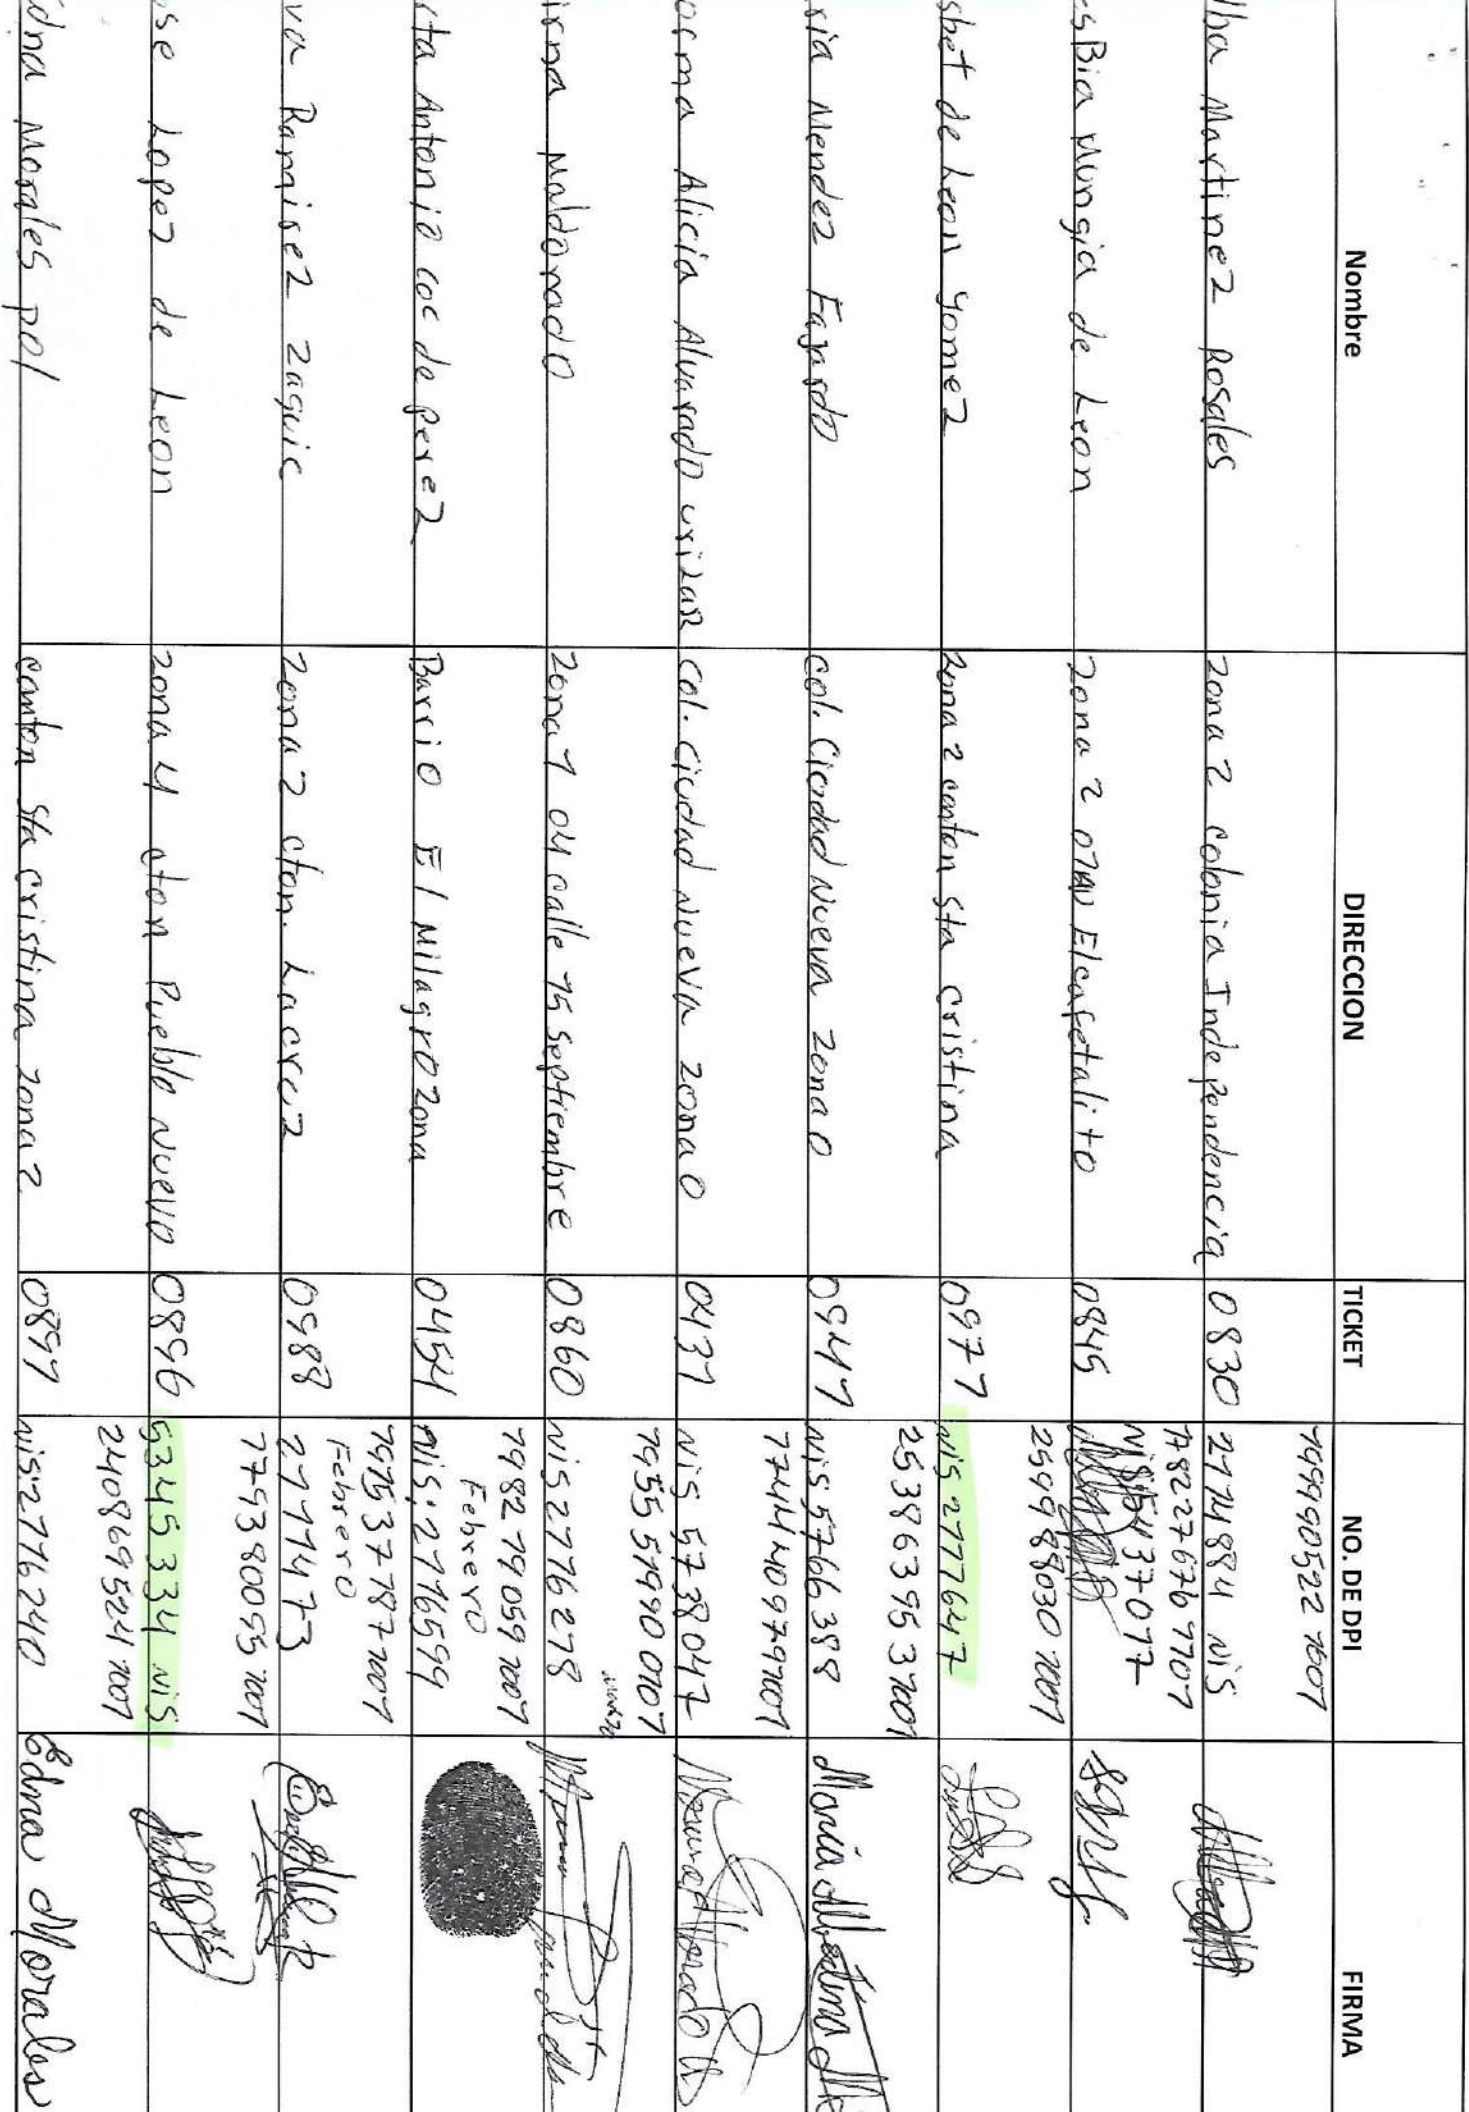 Nombre DIRECCION TICKET NO. DE DPI FIRMA
1999 90522 1007
lba Martinez Rosales zona 2 colonia Independencia 0830 2774884 NIS
1782276761107
sBia Mungia de Leon zona 2 07AV Elcafetalito 0845 37077
2599 88030 1007
sbet de Leon gomez zona 2 canton sta cristina 0977 NIS 2777647
2538 63955 31001
ria Mendez Fajardo col. Ciudad Nueva zona 0 0947 NIS 5766388
1774 44097 91007
orma Alicia Alvarado urizar col. ciudad Nueva zona 0 0431 NIS 5738047
1955 51990 0107
irma Maldonado zona 1 04 calle 15 septiembre 0860 NIS 2776278
1982 79059 1007
Febrero
rta Antonia coc de perez Barrio El Milagro zona 0454 NIS: 2776599
1915 37787 1007
Febrero
va Ramirez zaquic zona 2 cton. Lacruz 0988 2777473
1753 80055 1007
se Lopez de Leon zona 4 cton Pueblo Nuevo 0896 5345334 NIS
2408 69524 1007
dna Morales pol canton sta cristina zona 2 0897 NIS: 2776240 Edna Morales